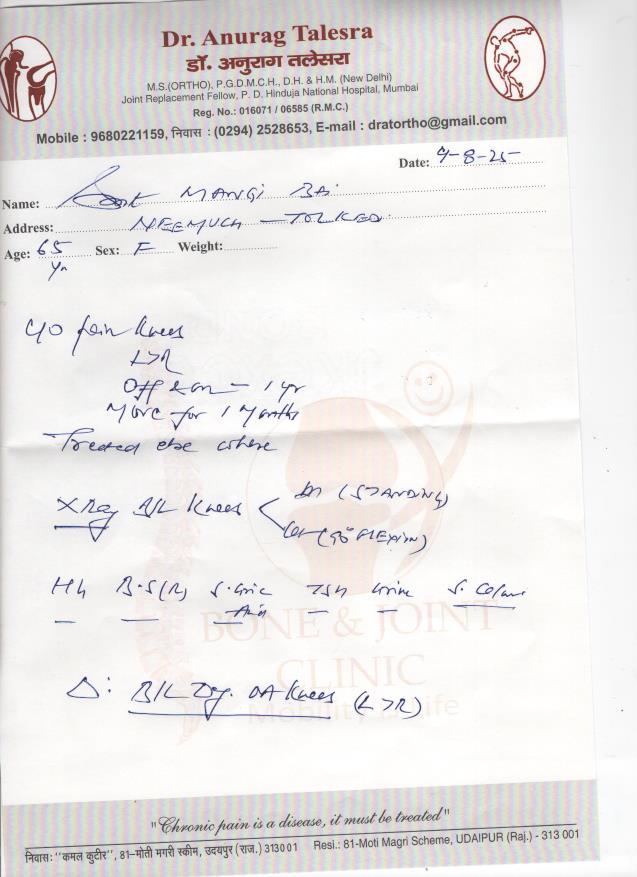 Dr. Anurag Talesra
डॉ. अनुराग तलेसरा
M.S.(ORTHO), P.G.D.M.C.H., D.H. & H.M. (New Delhi)
Joint Replacement Fellow, P. D. Hinduja National Hospital, Mumbai
Reg. No.: 016071 / 06585 (R.M.C.)
Mobile : 9680221159, निवास : (0294) 2528653, E-mail : dratortho@gmail.com
Date: 9-8-25
Name: MANGI BAI
Address: NEEMUCH
Age: 65 yr Sex: F Weight:
C/O Pain Knees
L>R
Off & on - 1 yr
More for 1 Months
Treated else where
X Ray B/L Knees (STANDING)
(90° FLEXION)
Hb B.S(R) S. Uric Acid TSH Urine S. Calcium
Δ: B/L Dg. OA Knees (L>R)
BONE & JOINT
CLINIC
Mobility is Life
"Chronic pain is a disease, it must be treated"
निवास: "कमल कुटीर", 81-मोती मगरी स्कीम, उदयपुर (राज.) 313001 Resi.: 81-Moti Magri Scheme, UDAIPUR (Raj.) - 313 001